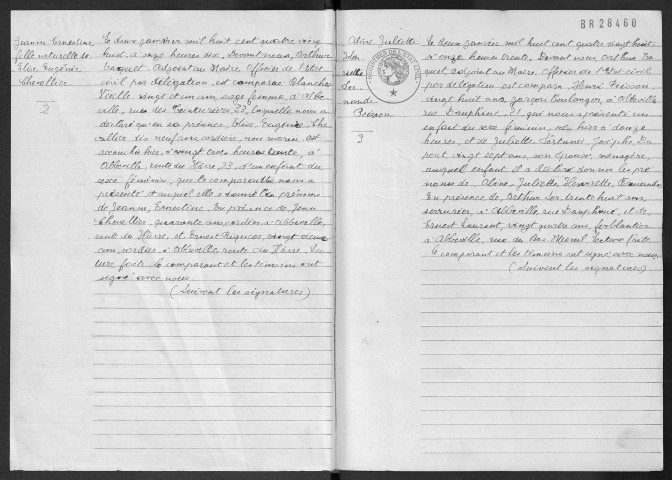 Jeanne Ernestine
fille naturelle de
Elise Eugénie
Chevallier
2
Le deux janvier mil huit cent quatre vingt
huit, à onze heures dix, Devant nous, Arthur
Adjoint au Maire, Officier de l'Etat
civil par délégation, est comparue Blanche
vingt et un ans, sage femme, à Abbe-
ville, rue des 33, laquelle nous a
déclaré qu'en sa présence, Elise, Eugénie Che-
vallier dix neuf ans, cordière, non mariée est
accouchée hier, à vingt trois heures trente, à
Abbeville, route du Hâvre, 33, d'un enfant du
sexe féminin, que la comparante nous a
présenté et auquel elle a donné les prénoms
de Jeanne, Ernestine. En présence de Jean
Chevallier quarante ans, cordier, à Abbeville,
route du Hâvre, et Ernest vingt deux
ans, cordier à Abbeville, route du Hâvre. Lec-
ture faite, la comparante et les témoins ont
signé avec nous.
(Suivent les signatures)
BR28460
Aline Juliette
Hen
riette
Fer
nande
3
Le deux janvier mil huit cent quatre vingt huit
à onze heures trente, Devant nous Arthur
adjoint au Maire, Officier de l'Etat civil
par délégation est comparu Henri
vingt huit ans, garçon boulanger, à Abbeville
rue Dauphine, et, qui nous a présenté un
enfant du sexe féminin, né hier à douze
heures, et de Juliette Joseph, Du
pont vingt sept ans, son épouse, ménagère,
auquel enfant il a déclaré donner les pré
noms de Aline, Juliette, Henriette, Fernande
En présence de Arthur trente huit ans,
serrurier, à Abbeville rue Dauphine, et de
Ernest Laurent, vingt quatre ans, ferblantier
à Abbeville, rue du Bas Mesnil Lecture faite
le comparant et les témoins ont signé avec nous
(Suivent les signatures)